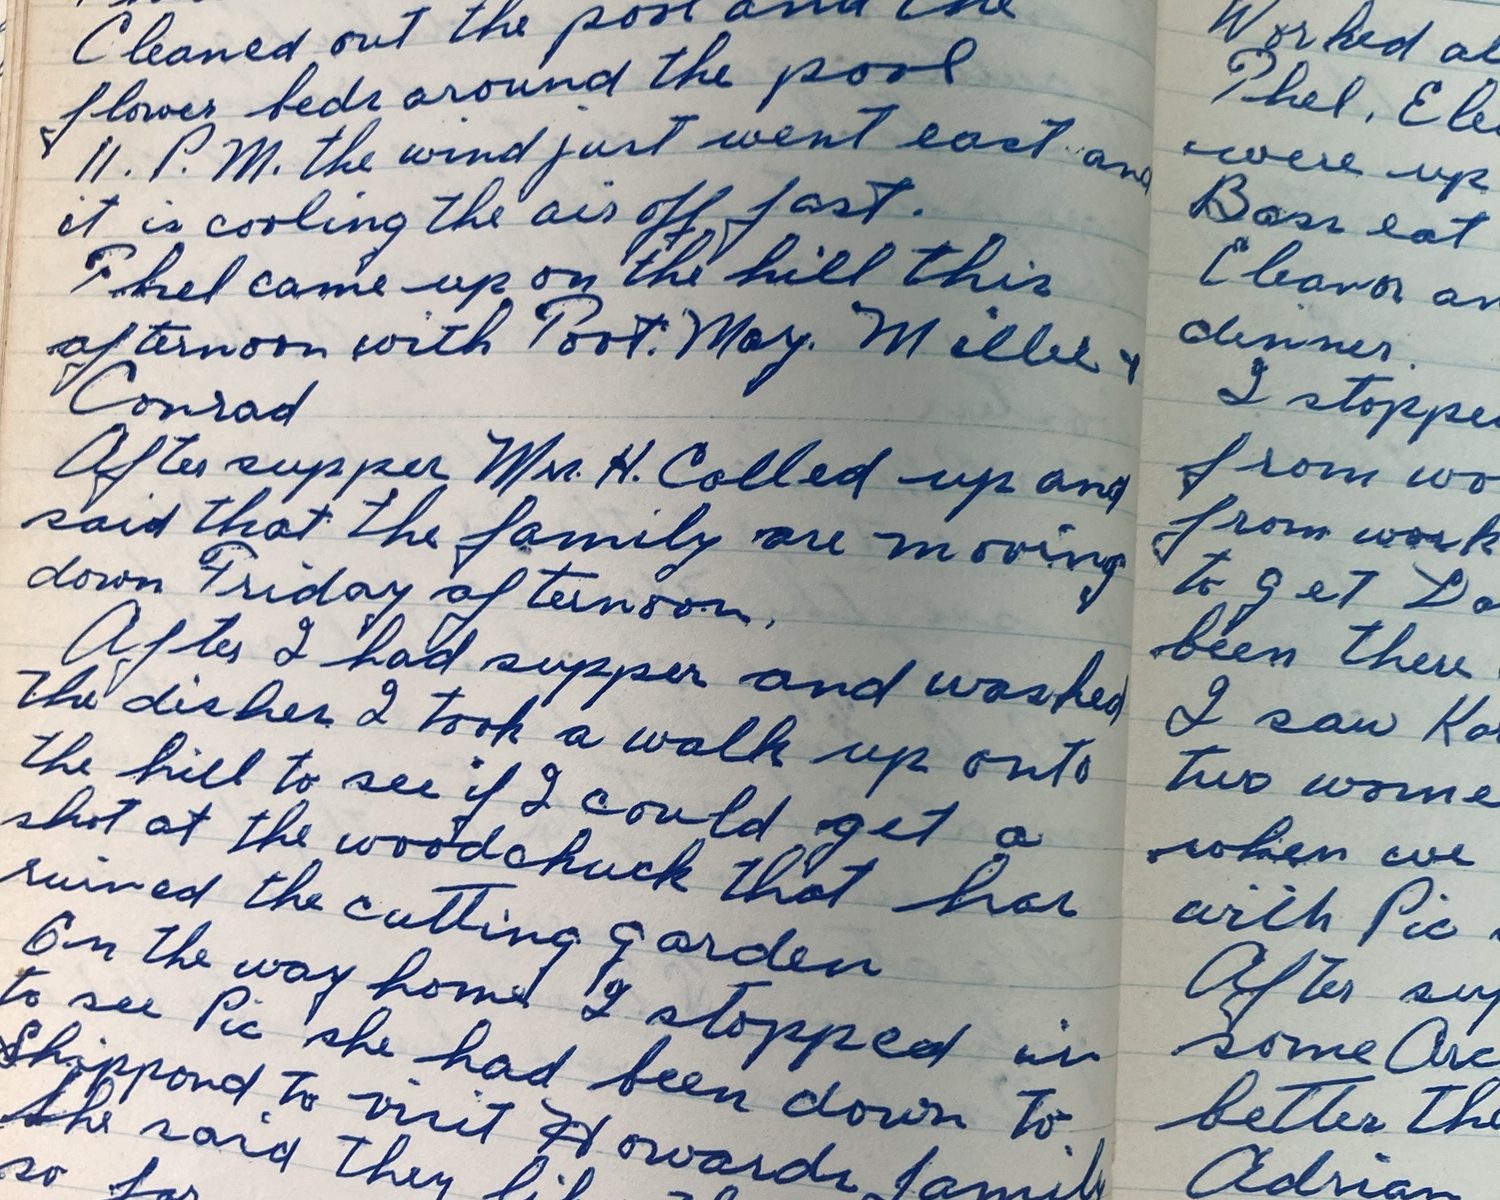 Cleaned out the pool and the
flower beds around the pool
11. P.M. the wind just went east and
it is cooling the air off fast.
Phel came up on the hill this
afternoon with Poot. May. Millie &
Conrad
After supper Mrs. H. Called up and
said that the family are moving
down Friday afternoon.
After I had supper and washed
the dishes I took a walk up onto
the hill to see if I could get a
shot at the woodchuck that has
ruined the cutting garden
On the way home I stopped in
to see Pic she had been down to
Shippond to visit Howards family
She said they
so far
Worked
Phel, 
were up
Bass eat
Eleanor
dinner.
I stopped
from
from work
to get
been there
I saw
two
when we
with Pic
After
some
better
Adrian